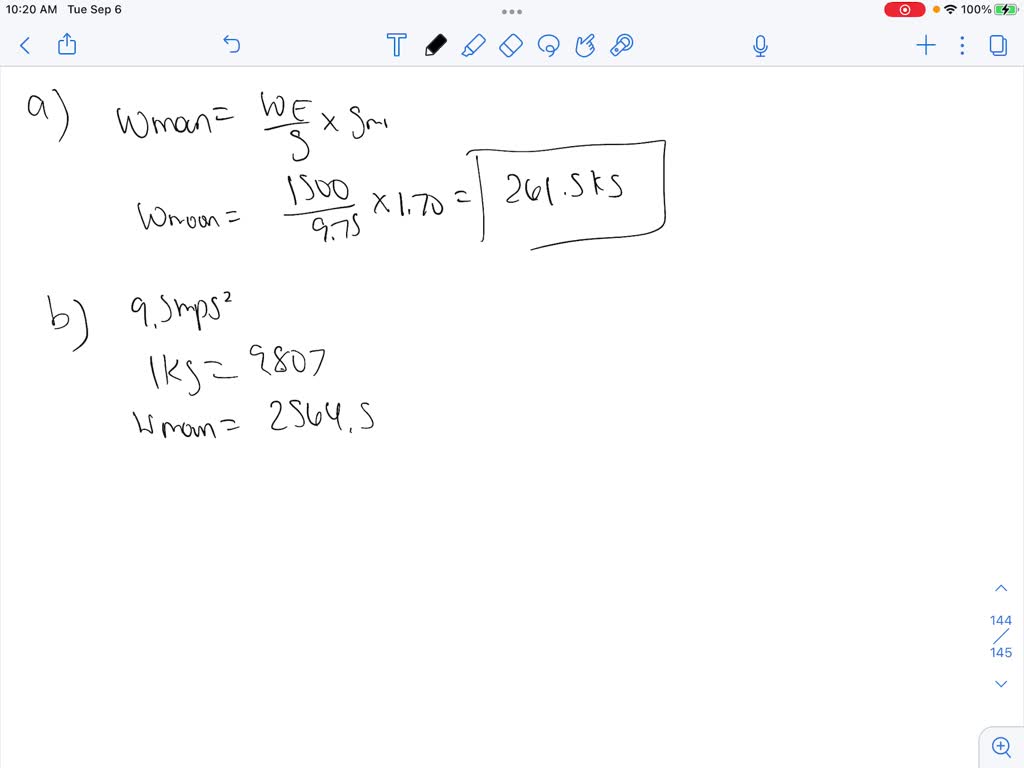 10:20 AM Tue Sep 6
100%
a) Wman = WE/g × gm
Wmoon = 1500/9.75 × 1.70 = 261.5 kg
b) 9.5mps²
1kg = 9807
Wmoon = 2564.5
144
145